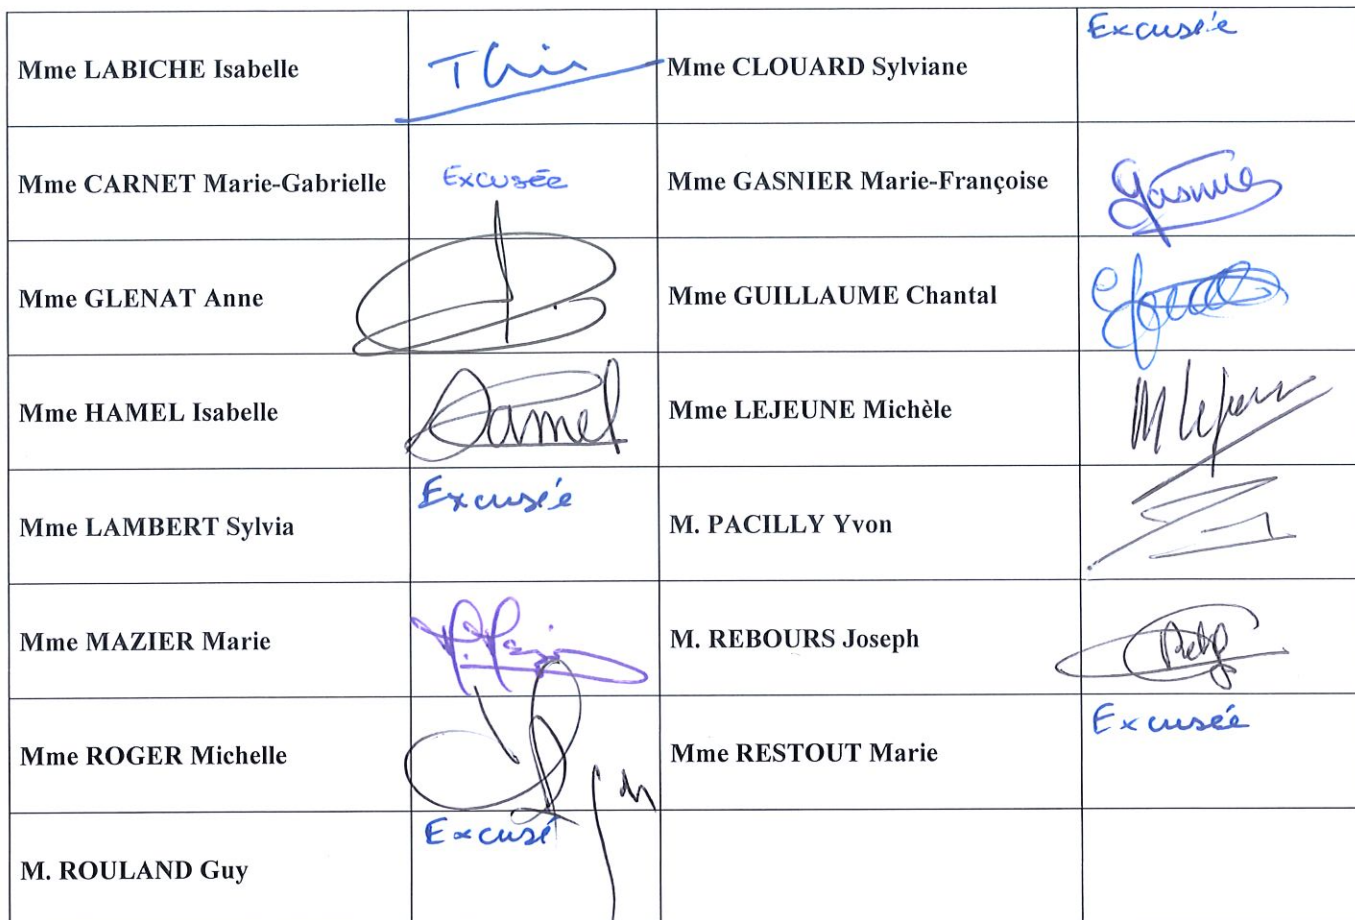 Mme LABICHE Isabelle
Mme CLOUARD Sylviane
Excusée
Mme CARNET Marie-Gabrielle
Excusée
Mme GASNIER Marie-Françoise
Gasnier
Mme GLENAT Anne
Mme GUILLAUME Chantal
Mme HAMEL Isabelle
Hamel
Mme LEJEUNE Michèle
M Lejeune
Mme LAMBERT Sylvia
Excusée
M. PACILLY Yvon
Mme MAZIER Marie
M. REBOURS Joseph
Mme ROGER Michelle
Mme RESTOUT Marie
Excusée
M. ROULAND Guy
Excusé